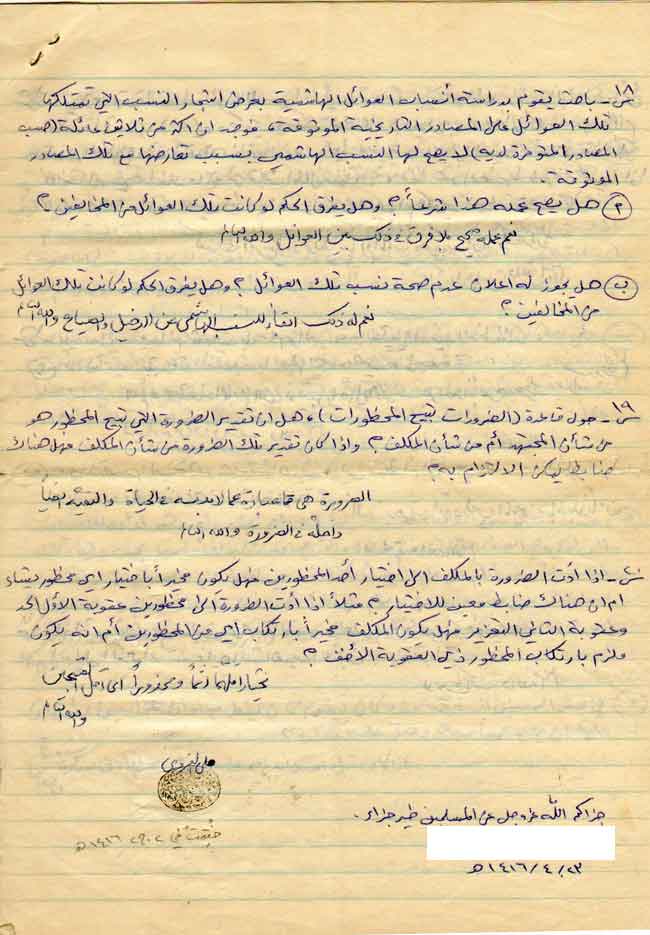 س١٨- باحث يقوم بدراسة أنساب العوائل الهاشمية بغرض اشجار النسب التي تمتلكها
تلك العوائل على المصادر التاريخية الموثوقة، فوجد ان اكثر من ثلاثين عائلة (حسب
المصادر المتوفرة لديه) لا يصح لها النسب الهاشمي بسبب تعارضها مع تلك المصادر
الموثوقة.
أ) هل يصح عمله هذا شرعاً؟ وهل يفرق الحكم لو كانت تلك العوائل من المخالفين؟
نعم عمله صحيح بلا فرق في ذلك بين العوائل والله العالم
ب) هل يجوز له اعلان عدم صحة نسب تلك العوائل؟ وهل يفرق الحكم لو كانت تلك العوائل
من المخالفين؟
نعم له ذلك للنسب الهاشمي عن الدخيل والله العالم
س١٩- حول قاعدة (الضرورات تبيح المحظورات)، هل ان تقدير الضرورة التي تبيح المحظور هو
من شأن المجتهد أم من شأن المكلف؟ واذا كان تقدير تلك الضرورة من شأن المكلف فهل هناك
ضابط يمكن الالتزام به؟
الضرورة هي عبارة عما لابد منه في الحياة والتقية ايضاً
داخلة في الضرورة والله العالم
س- اذا أدت الضرورة بالمكلف الى اختيار أحد المحظورين فهل يكون مخيراً باختيار اي محظور يشاء
ام ان هناك ضابط معين للاختيار؟ مثلاً اذا أدت الضرورة الى محظورين عقوبة الأول الحد
وعقوبة الثاني التعزير فهل يكون المكلف مخيراً بارتكاب اي من المحظورين أم انه يكون
ملزم بارتكاب المحظور ذي العقوبة الأخف؟
يختار اقلهما اثماً ومحذوراً اي اقل القبيحين
والله العالم
جزاكم الله عز وجل عن المسلمين خير جزاء.
٢٣/٤/١٤١٦هـ